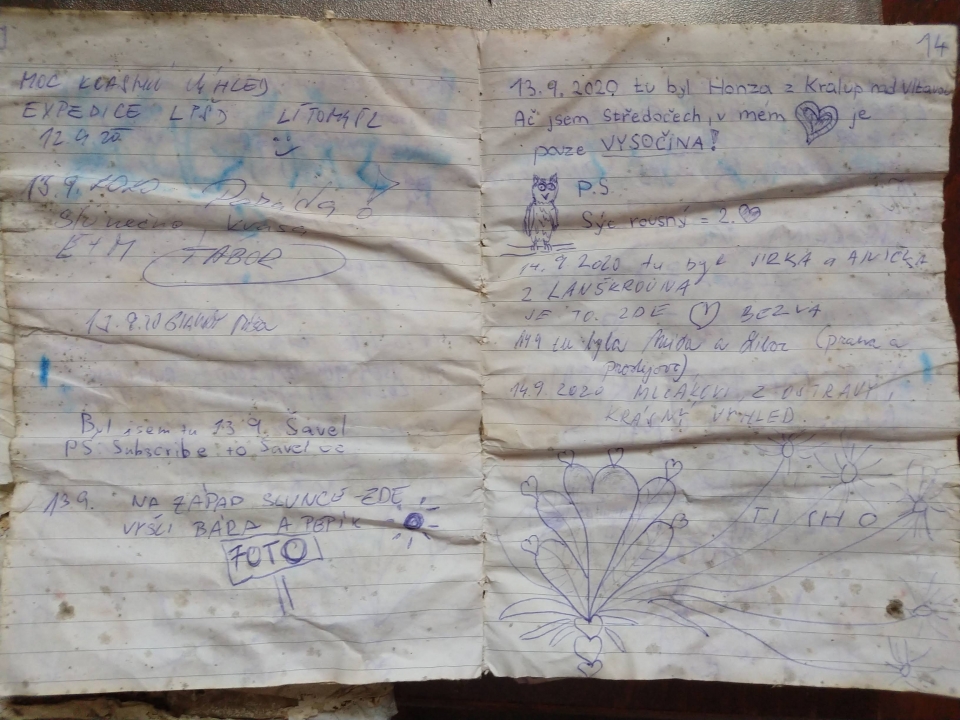 MOC KRÁSNÝ VÝHLED
EXPEDICE LPŠD LITOMYŠL
12 9 20
13.9.2020 Paráda
Slunečno krása
TÁBOR
13.9.20
Byl jsem tu 13.9. Šavel
PS: Subscribe to Šavel
13.9. NA ZÁPAD SLUNCE ZDE
VYŠLI BÁRA A PEPÍK
FOTO
14
13.9.2020 tu byl Honza z Kralup nad Vltavou
Ač jsem Středočech, v mém je
pouze VYSOČINA!
P.S.
Sýc rousný = 2.
14.9 2020 tu byl JIRKA a ANIČKA
Z LANŠKROUNA
JE TO ZDE BEZVA
14.9 tu byla a Libor (Praha a
14.9.2020 Z OSTRAVY,
KRÁSNÝ VÝHLED.
TICHO